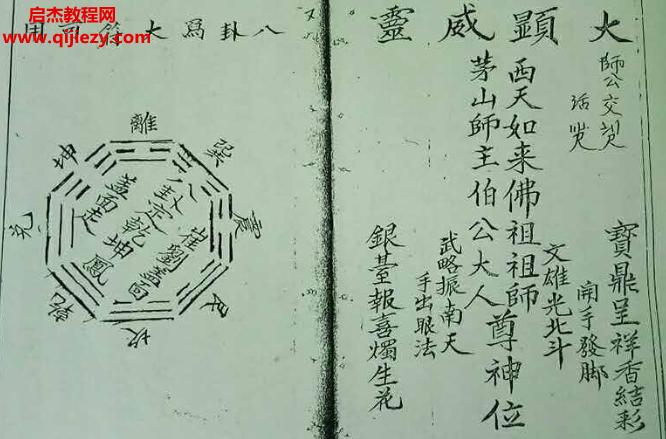 启杰教程网
www.qijiezy.com
大顯威靈
師公交
寶鼎呈祥香結彩
開手發脚
文雄光北斗
西天如来佛祖祖師
茅山師主伯公大人
尊神位
武略振南天
手出眼法
銀臺報喜燭生花
八卦爲大
離
巽
震
艮
坎
乾
兌
坤
崔
劉蓋面
八卦定乾坤鳳
蓋面走